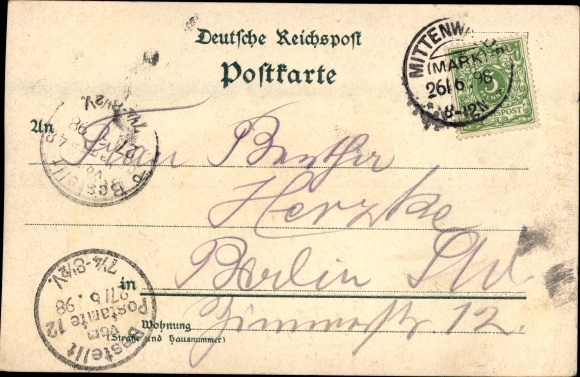 Deutsche Reichspost
Postkarte
MITTENWALDE
(MARK)
26/6.98
8-12N
5
REICHSPOST
An Frau Berther
Herzke
in Berlin SW
Wohnung Zimmerstr 12.
(Straße und Hausnummer)
Bestellt
vom
Postamte 12
27/6.98
7¼-8½V.
Bestellt
vom
7¼-8½V.